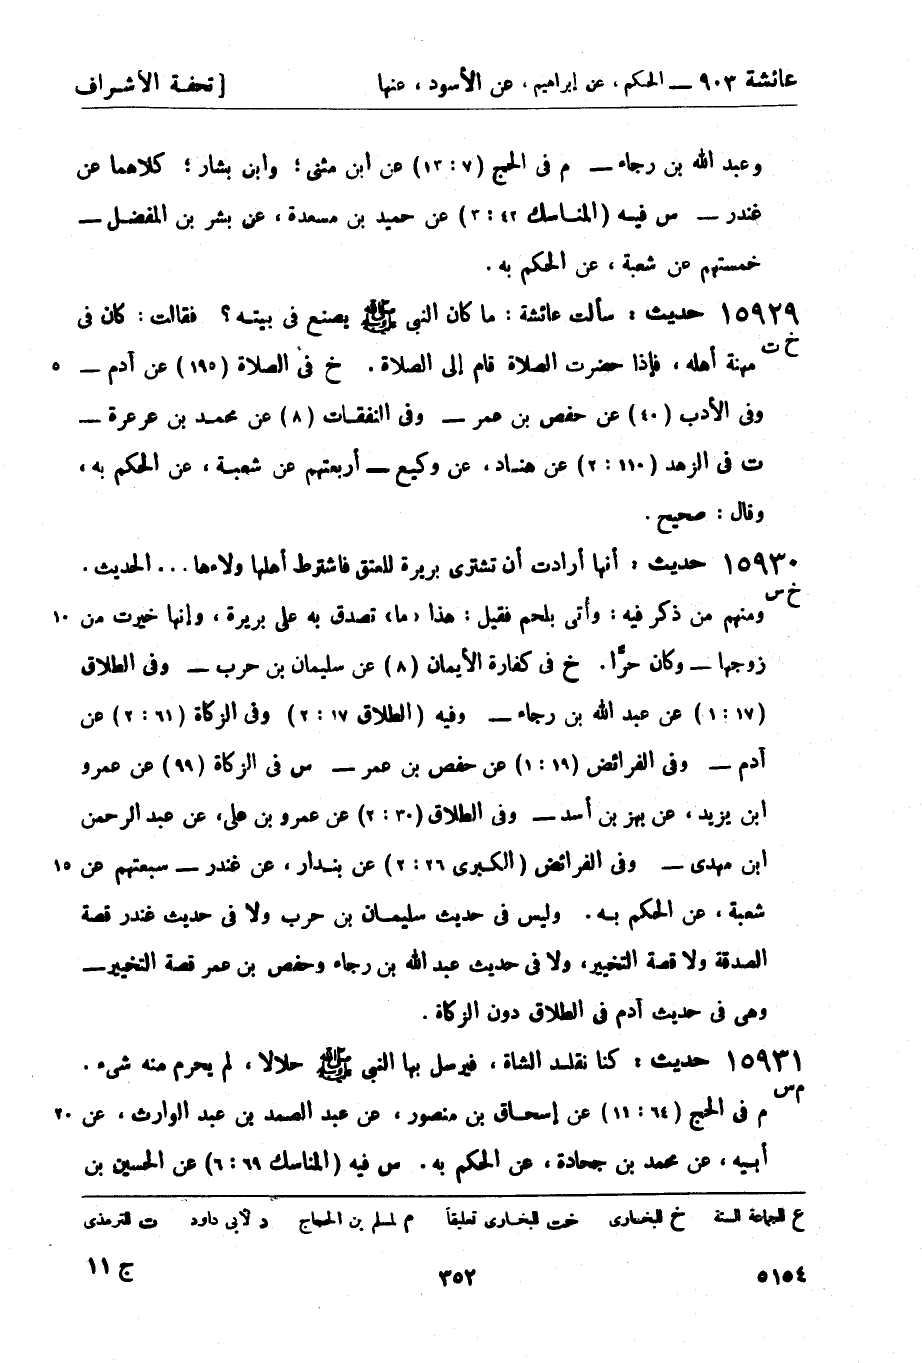 عائشة ٩٠٣ — الحكم ، عن إبراهيم ، عن الأسود ، عنها [ تحفة الأشراف
وعبد الله بن رجاء — م فى الحج (٧ : ١٣) عن ابن مثنى ؛ وابن بشار ؛ كلاهما عن
غندر — س فيه (المناسك ٤٢ : ٣) عن حميد بن مسعدة ، عن بشر بن المفضل —
خمستهم عن شعبة ، عن الحكم به .
١٥٩٢٩ حديث : سألت عائشة : ما كان النبي ﷺ يصنع فى بيته ؟ فقالت : كان فى
خ ت مهنة أهله ، فإذا حضرت الصلاة قام إلى الصلاة . خ فى الصلاة (١٩٥) عن آدم — ٥
وفى الأدب (٤٠) عن حفص بن عمر — وفى النفقات (٨) عن محمد بن عرعرة —
ت فى الزهد (١١٠ : ٢) عن هناد ، عن وكيع — أربعتهم عن شعبة ، عن الحكم به ،
وقال : صحيح .
١٥٩٣٠ حديث : أنها أرادت أن تشترى بريرة للعتق فاشترط أهلها ولاءها ... الحديث .
خ س ومنهم من ذكر فيه : وأتى بلحم فقيل : هذا «ما» تصدق به على بريرة ، وإنها خيرت من ١٠
زوجها — وكان حرًّا . خ فى كفارة الأيمان (٨) عن سليمان بن حرب — وفى الطلاق
(١٧ : ١) عن عبد الله بن رجاء — وفيه (الطلاق ١٧ : ٢) وفى الزكاة (٦١ : ٢) عن
آدم — وفى الفرائض (١٩ : ١) عن حفص بن عمر — س فى الزكاة (٩٩) عن عمرو
ابن يزيد ، عن بهز بن أسد — وفى الطلاق (٣٠ : ٢) عن عمرو بن على ، عن عبد الرحمن
ابن مهدى — وفى الفرائض (الكبرى ٢٦ : ٢) عن بندار ، عن غندر — سبعتهم عن ١٥
شعبة ، عن الحكم به . وليس فى حديث سليمان بن حرب ولا فى حديث غندر قصة
الصدقة ولا قصة التخيير ، ولا فى حديث عبد الله بن رجاء وحفص بن عمر قصة التخيير —
وهى فى حديث آدم فى الطلاق دون الزكاة .
١٥٩٣١ حديث : كنا نقلد الشاة ، فيرسل بها النبي ﷺ حلالا ، لم يحرم منه شىء .
م س م فى الحج (٦٤ : ١١) عن إسحاق بن منصور ، عن عبد الصمد بن عبد الوارث ، عن ٢٠
أبيه ، عن محمد بن جحادة ، عن الحكم به . س فيه (المناسك ٦٩ : ٦) عن الحسين بن
ع للجماعة الستة خ للبخارى خت للبخارى تعليقاً م لمسلم بن الحجاج د لأبى داود ت للترمذى
٥١٥٤ ٣٥٢ ج ١١